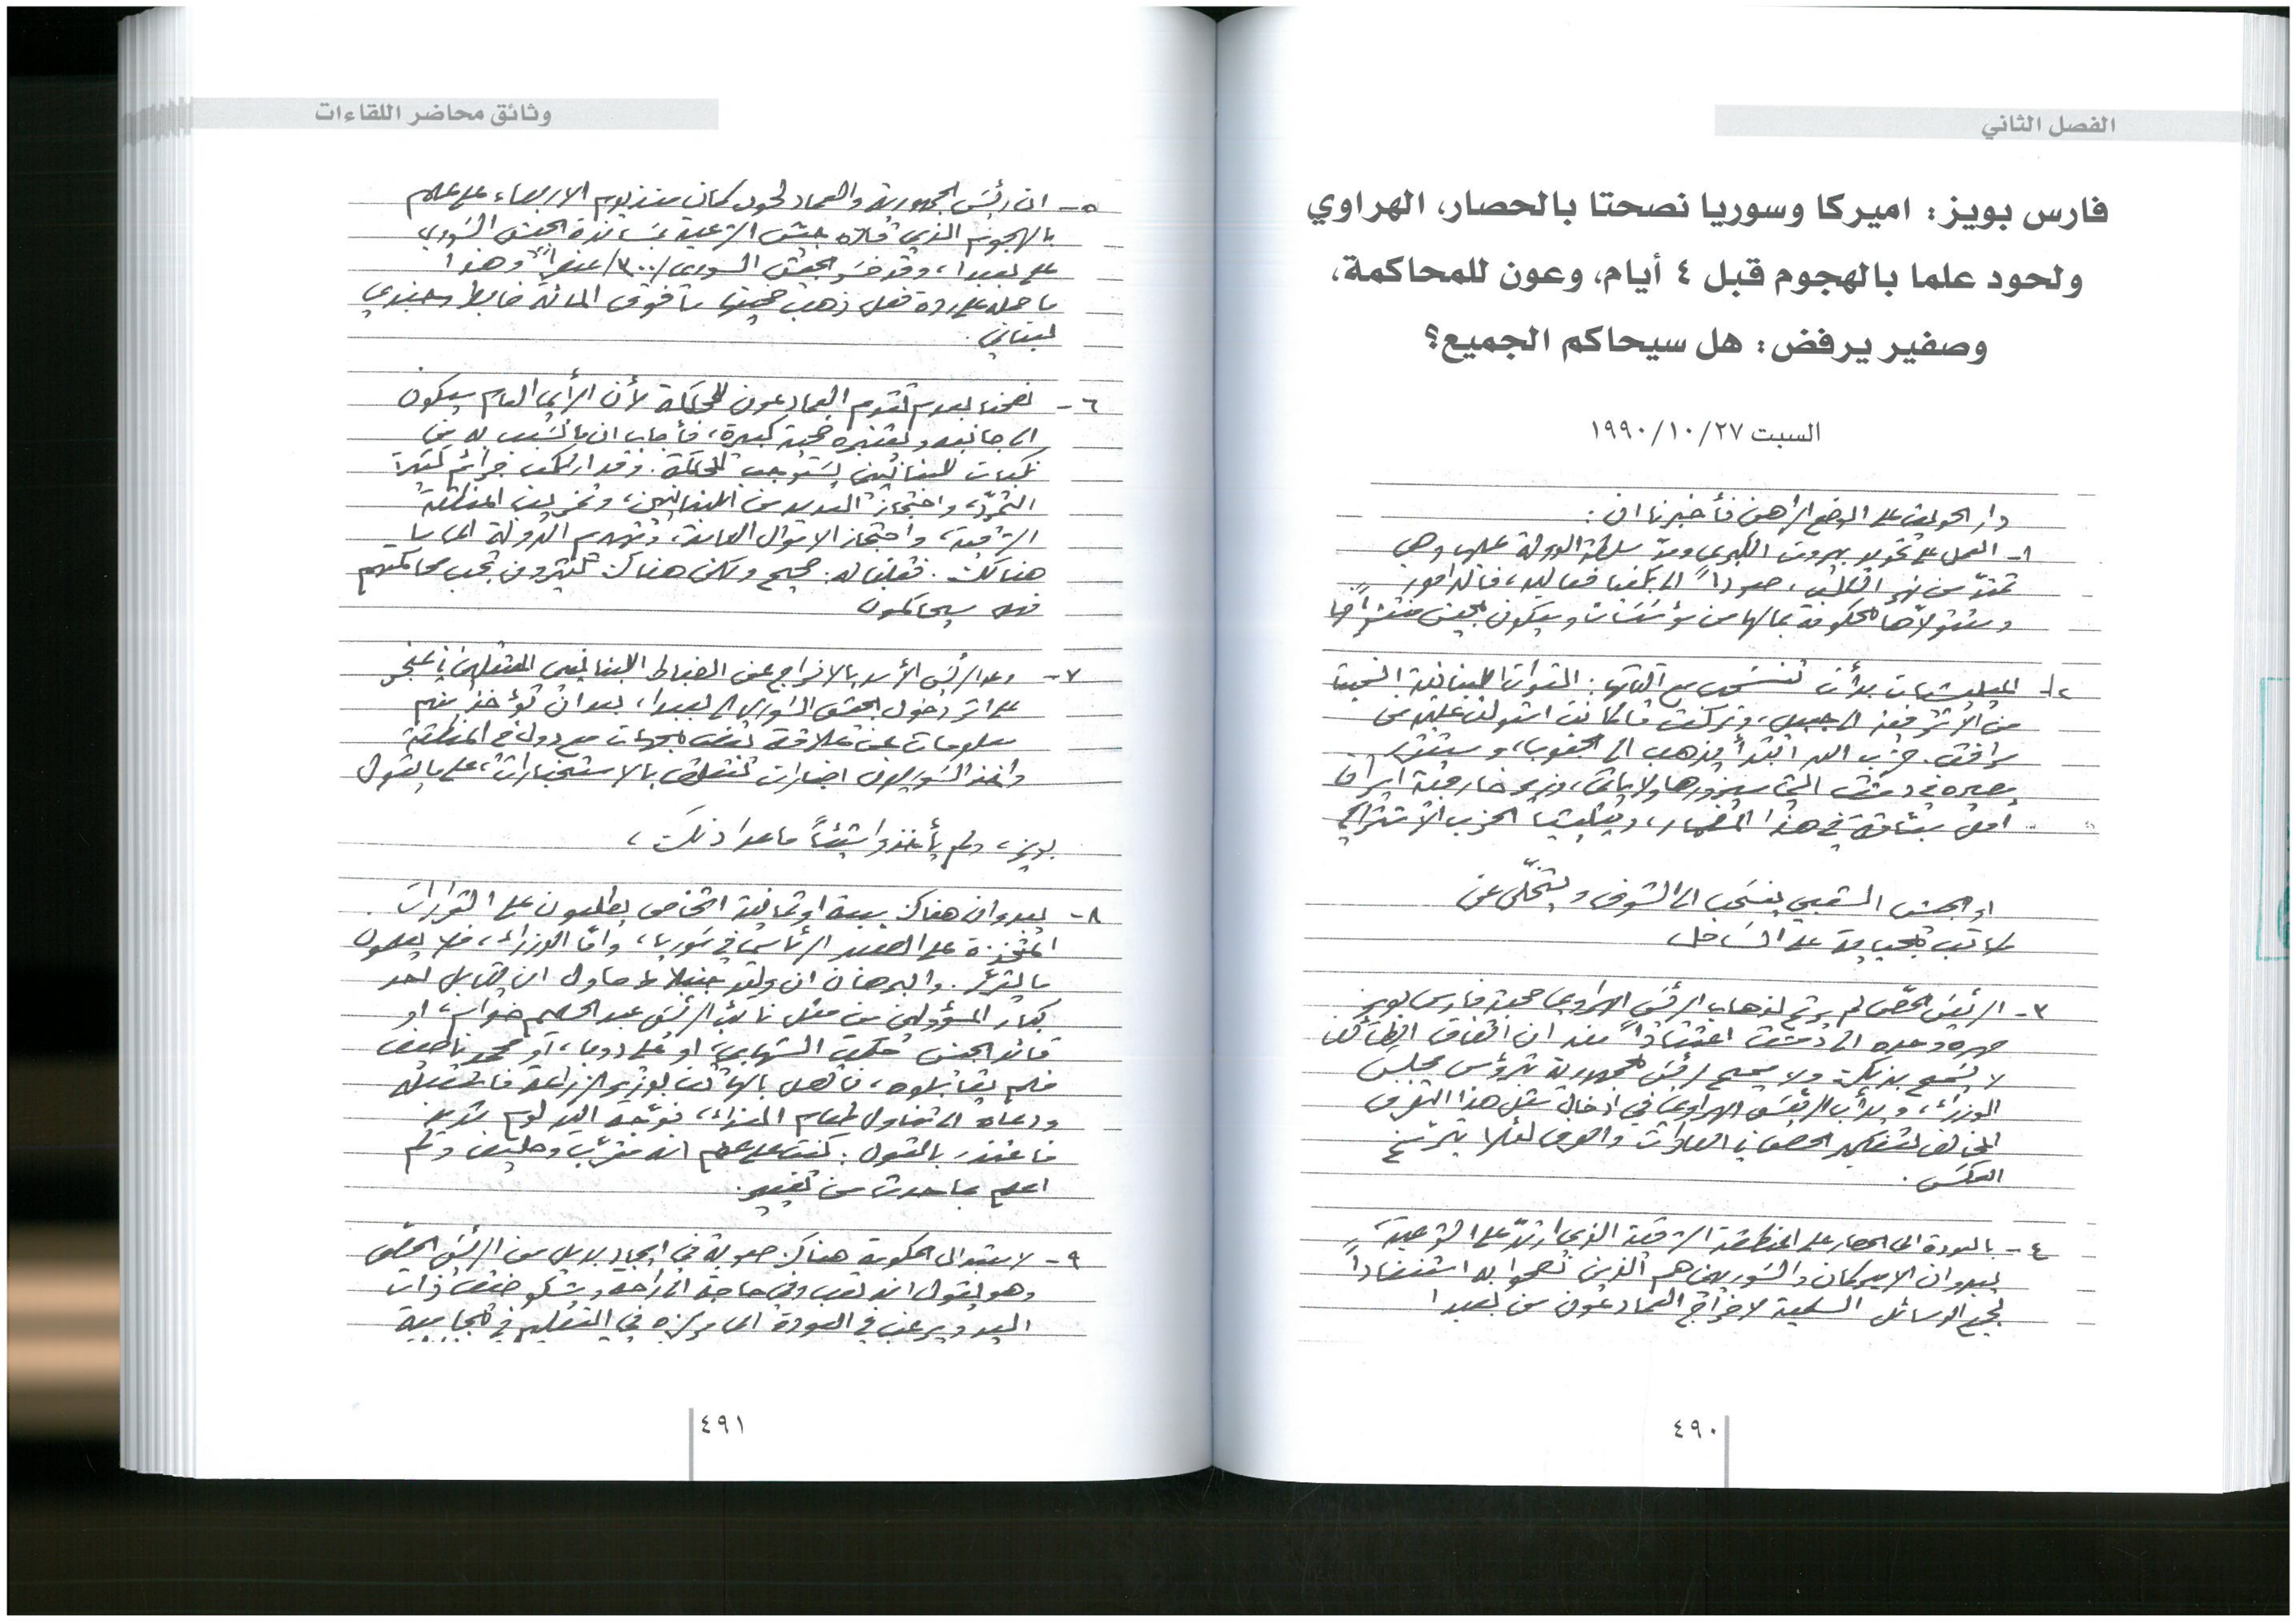 الفصل الثاني
فارس بويز: اميركا وسوريا نصحتا بالحصار، الهراوي
ولحود علما بالهجوم قبل ٤ أيام، وعون للمحاكمة،
وصفير يرفض: هل سيحاكم الجميع؟
السبت ٢٧/١٠/١٩٩٠
دار الحديث على الوضع الراهن فأخبرنا ان:
١- العمل على تحويل بيروت الكبرى ومدّ سلطة الدولة عليها وهي
تمتدّ من نهر الكلب، صعوداً الى بكفيا فعاليه، فالدامور
وستتولاّها الحكومة بمالها من مؤسسات ويكون الجيش منتشراً فيها
٢- الميليشيات بدأت تنسحب مع آلياتها: القوات اللبنانية انسحبت
من الأشرفية الى جبيل، وتركت ما كانت استولت عليه من
مرافق. حزب الله ابتدأ يذهب الى الجنوب، وسيتقرر
مصيره في دمشق التي سيزورها ولاياتي، وزير خارجية ايران
امل سبّاقة في هذا المضمار، وميليشيا الحزب الاشتراكي
او الجيش الشعبي ينسحب الى الشوف ويتخلّى عن
مكاتب الجباية على الساحل
٣- الرئيس الحصّ لم يرتح لذهاب الرئيس الهراوي صحبة فارس بويز
صهره وحده الى دمشق اعتقاداً منه ان اتفاق الطائف
لا يسمح بذلك ولا يسمح لرئيس الجمهورية بترؤس مجلس
الوزراء، وبدأب الرئيس الهراوي في ادخال مثل هذا العرف
المخالف لتفكير الحص في العادات والعرف لئلا يترسّخ
العكس.
٤- بالعودة الى الحصار على المنطقة الشرقية الذي ارتدّ على الشرعية،
يبدو ان الاميركان والسوريين هم الذين نصحوا به استنفاداً
لجميع الوسائل السلمية لاخراج العماد عون من بعبدا
٤٩٠
وثائق محاضر اللقاءات
٥- ان رئيس الجمهورية والعماد لحود كانا منذ يوم الاربعاء على علم
بالهجوم الذي قاده جيش الشرعية بمساندة الجيش السوري
على بعبدا، وقد خسر الجيش السوري /٣٠٠/ عنصراً وهذا
ما حمله على ردة فعل ذهب ضحيتها ما فوق المائة ضابط وجندي
لبناني.
٦- نصحنا بعدم تقديم العماد عون للمحاكمة لأن الرأي العام سيكون
الى جانبه ويعتبره ضحية كبيرة، فأجاب ان ما تسبب به من
نكبات للبنانيين يستوجب المحاكمة. وقد ارتكب جرائم كثيرة
التمرّد، واحتجاز العديد من اللبنانيين، وتخريب المنطقة
الشرقية، واحتجاز الاموال العامة، وتهديم الدولة الى ما
هنالك. فقلنا له: صحيح ولكن هناك كثيرون تجب محاكمتهم
فهل سيحاكمون
٧- وعد الرئيس الأسد بالافراج عن الضباط اللبنانيين المعتقلين في عنجر
على اثر دخول الجيش السوري الى بعبدا، بعد ان تؤخذ منهم
معلومات عن علاقة بعض الجهات مع دول في المنطقة
واخذ السوريون اضبارات تتعلق بالاستخبارات، على ما يقول
بويز، ولم يأخذوا شيئاً ما عدا ذلك،
٨- يبدو ان هناك سبعة او ثمانية اشخاص يطلعون على القرارات
المتّخذة على الصعيد الرئاسي في سوريا، وامّا الوزراء، فلا يعلمون
ما يتقرّر. والبرهان ان وليد جنبلاط حاول ان يقابل احد
كبار المسؤولين من مثل نائب الرئيس عبد الحليم خدام، او
قائد الجيش حكمت الشهابي، او علي دوبا، او محمد ناصيف
فلم يقابلوه، فاتصل بالهاتف بوزير الزراعة فاستقبله
ودعاه الى تناول طعام الغداء، فوجّه اليه لوم شديد
فاعتذر بالقول: كنت على علم انه مقرّب وحليف ولم
اعلم بما حدث من تغيير.
٩- لاستبدال الحكومة هناك صعوبة في ايجاد بديل من الرئيس الحصّ
وهو يقول انه تعب وفي حاجة الى راحة ويشكو ضيق ذات
اليد ويرغب في العودة الى مركزه في التعليم في الجامعة
٤٩١